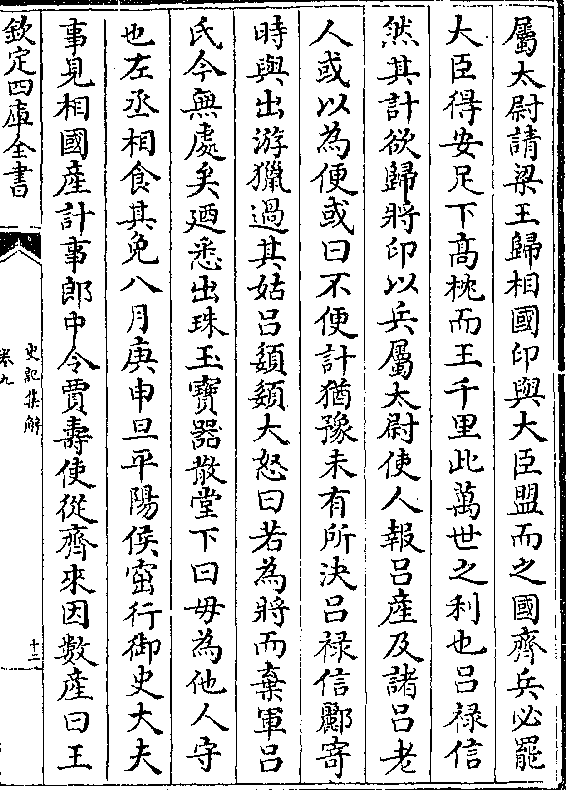 屬太尉請梁王歸相國印與大臣盟而之國齊兵必罷
大臣得安足下高枕而王千里此萬世之利也吕禄信
然其計欲歸將印以兵屬太尉使人報吕産及諸吕老
人或以為便或曰不便計猶豫未有所決吕禄信酈寄
時與出游獵過其姑吕嬃嬃大怒曰若為將而棄軍吕
氏今無處矣廼悉出珠玉寶器散堂下曰毋為他人守
也左丞相食其免八月庚申旦平陽侯窋行御史大夫
事見相國産計事郎中令賈壽使從齊來因數産曰王
欽定四庫全書
史記集解
卷九
十二